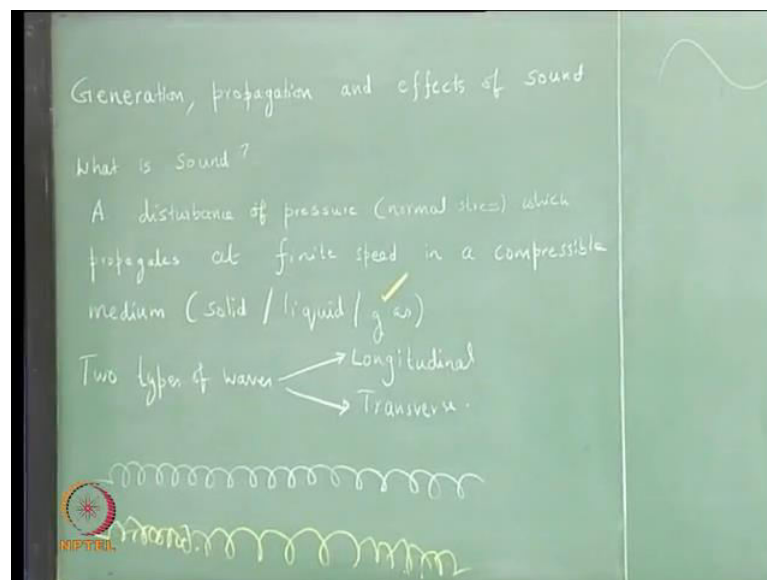 Generation, propagation and effects of sound
What is Sound?
A disturbance of pressure (normal stress) which
propagates at finite speed in a compressible
medium (solid / liquid / gas)
Two types of waves
Longitudinal
Transverse.
NPTEL